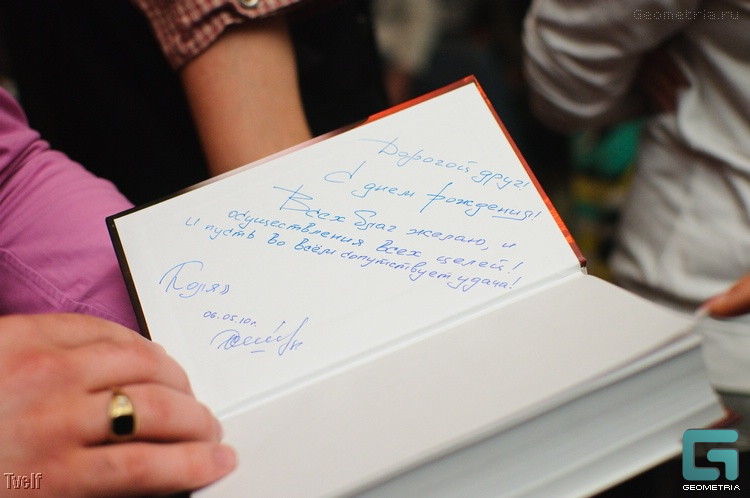 Geometria.ru
Дорогой друг!
С днем рождения!
Всех благ желаю, и
осуществления всех целей!
И пусть во всём сопутствует удача!
Коля
06.05.10г.
Tvelf
G
GEOMETRIA